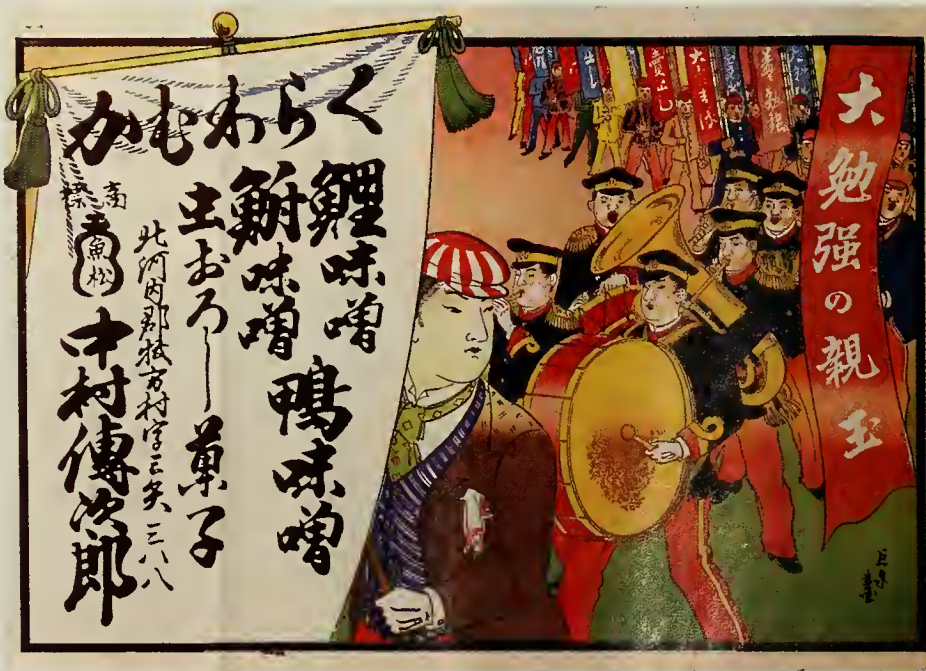 大勉强の親玉
賣出し
くらわむか
鯉味噌
鮒味噌
鴨味噌
虫おろし菓子
北河内郡枚方村字三矢三八八
商標
魚松
中村傳次郎